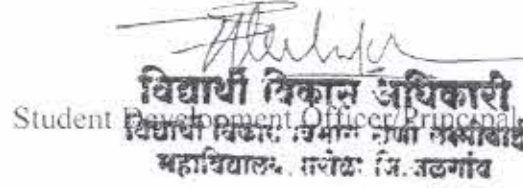 विद्यार्थी विकास अधिकारी
Student Development Officer/Principal
विद्यार्थी विकास विभाग राणी लक्ष्मीबाई
महाविद्यालय, पारोळा जि. जळगांव